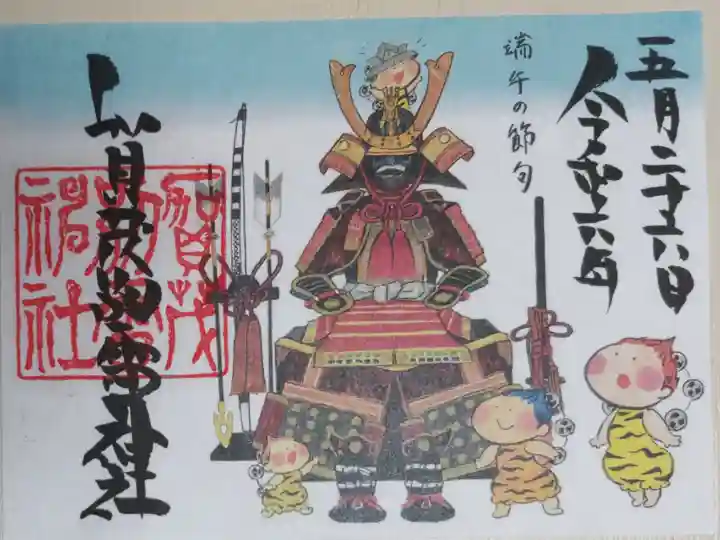 五月二十六日
令和六年
端午の節句
加茂別雷神社
賀茂
別雷
神社